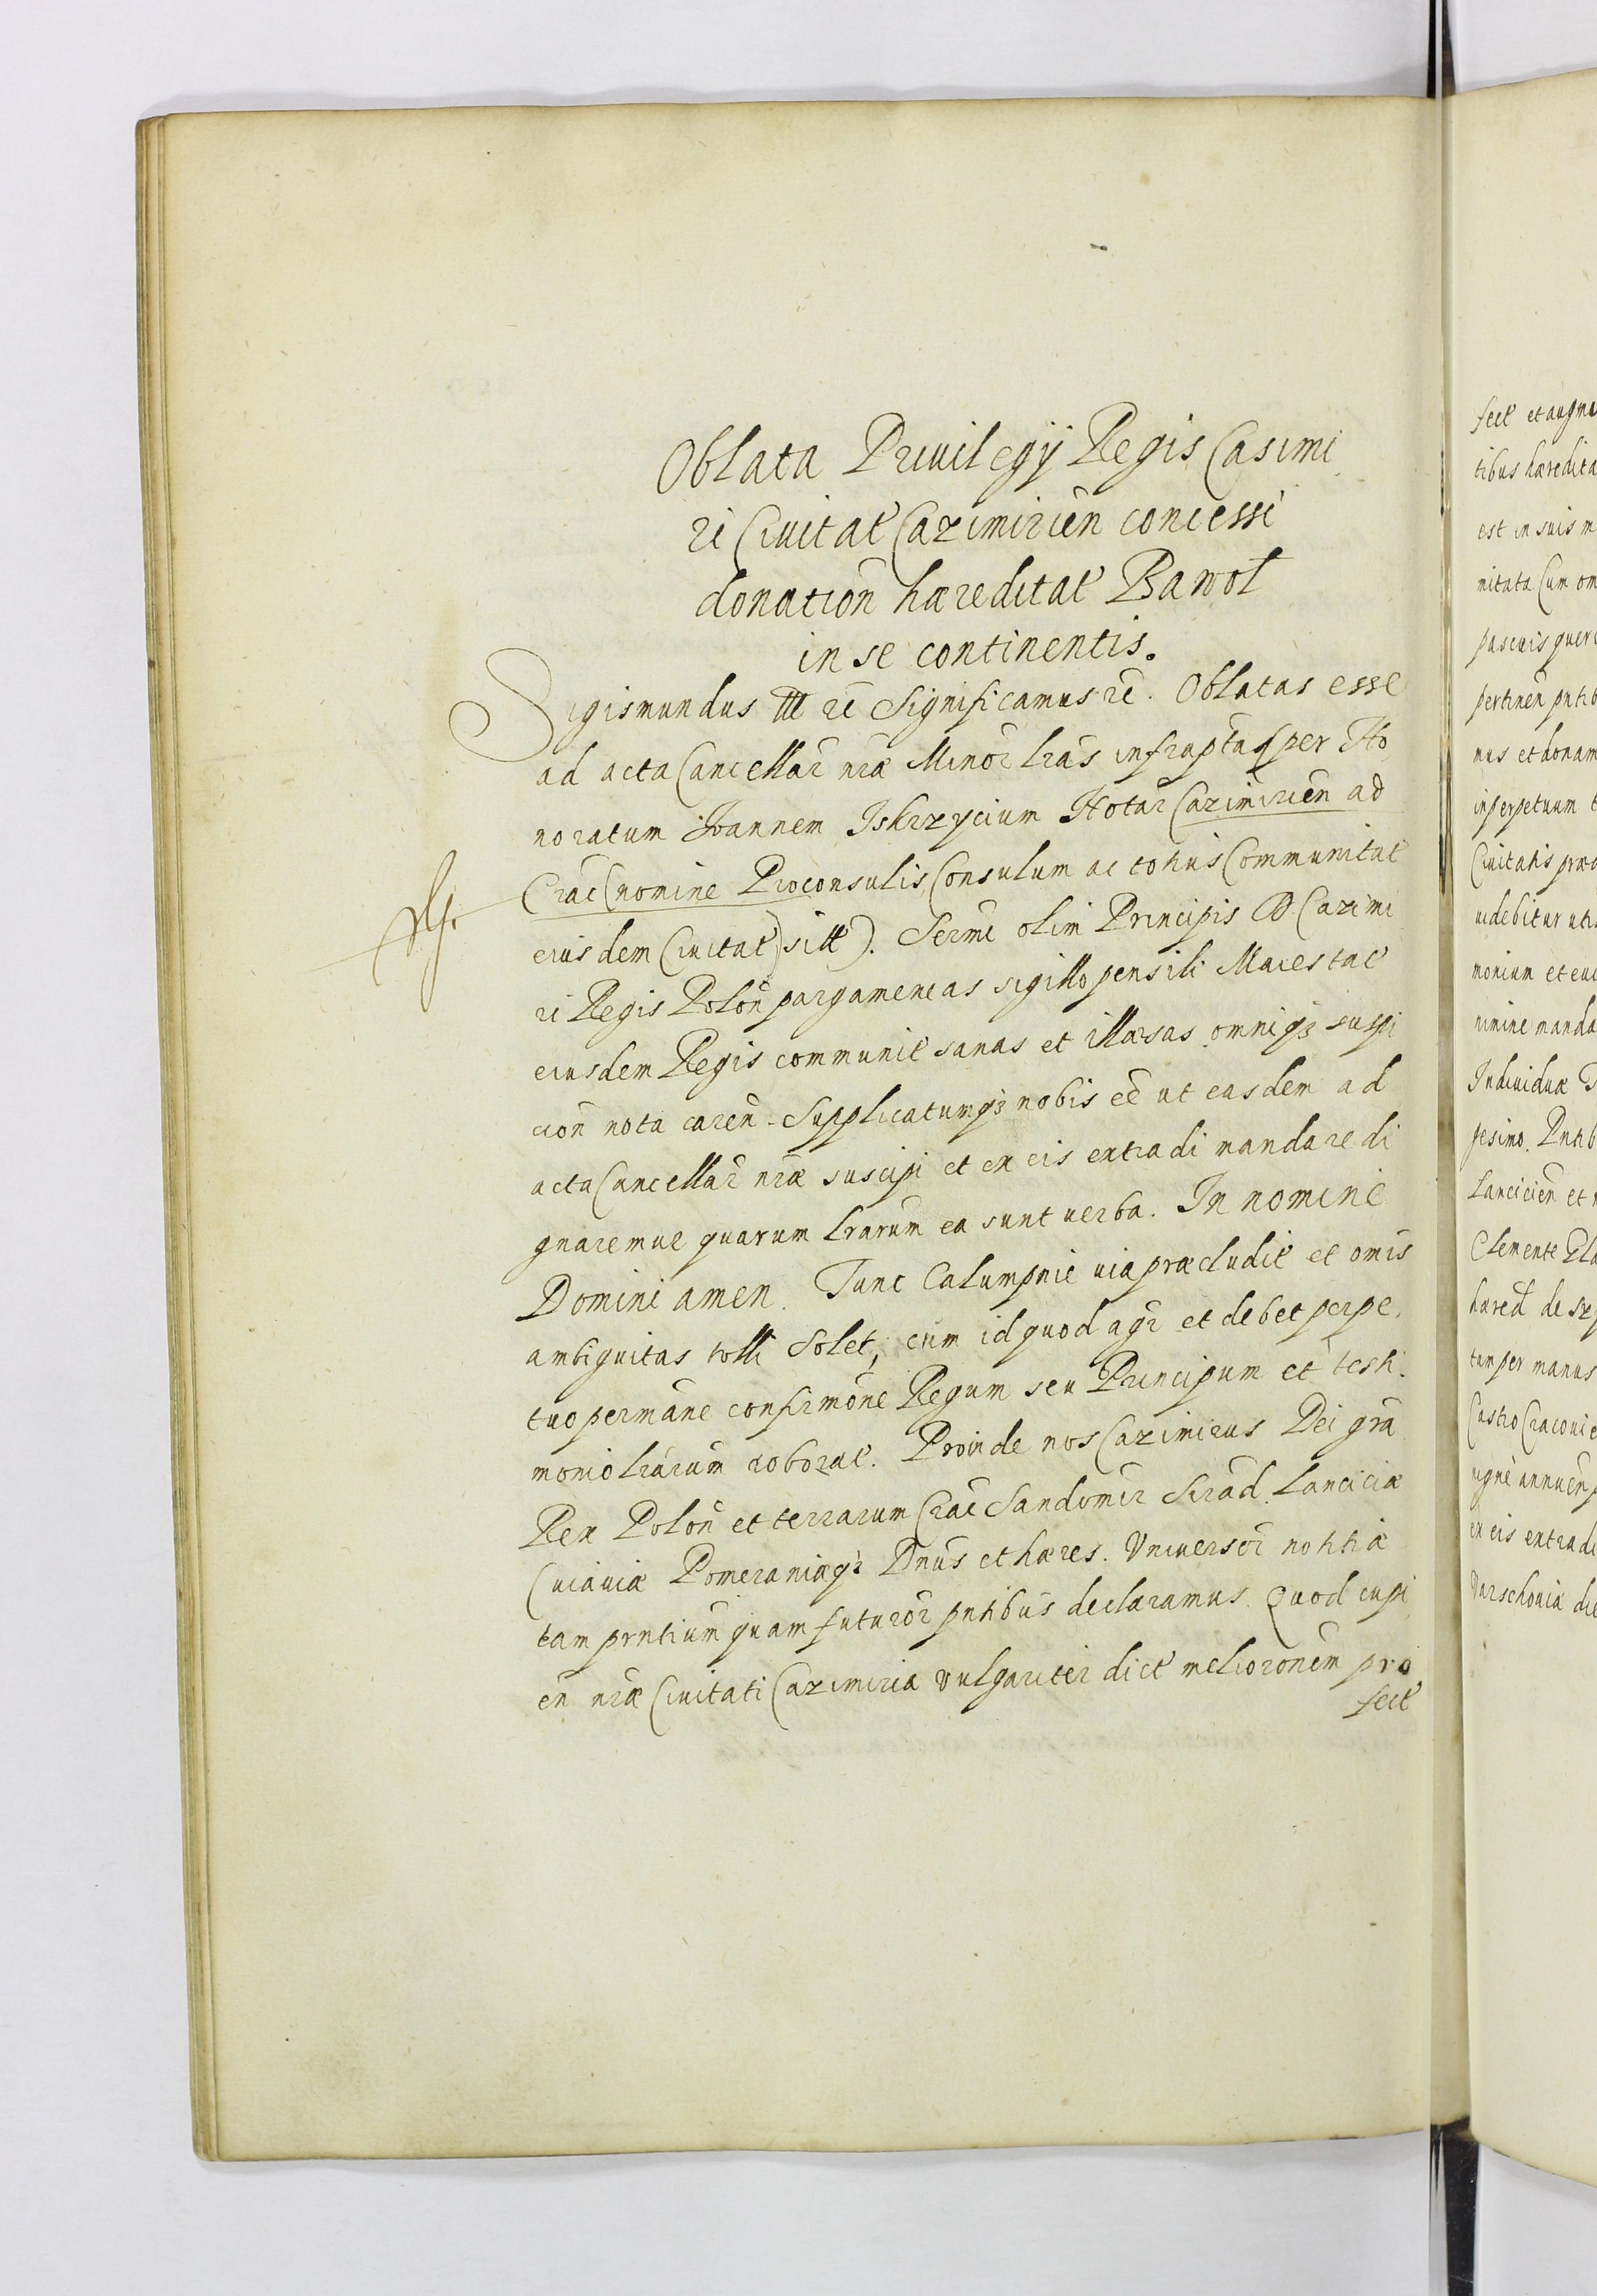 Oblata Priuilegij Regis Casimi
ri Ciuitat Cazimirien̄ concessi
donation̄ hæreditat Bawoł
in se continentis.
Sigismundus III etc Significamus etc. Oblatas esse
ad acta Cancellar̄ nr̄æ Minor̄ lrās infrāptas per Ho
noratum Joannem Iskrzycium Notar Cazimirien̄ ad
Crac (nomine Proconsulis, Consulum ac totius Communitat
eiusdem Ciuitat) sitt). Sermi olim Principis D Cazimi
ri Regis Polon̄ pargameneas sigillo pensili Maiestat
eiusdem Regis communit sanas et illæsas omniqȝ suspi
cion̄ nota caren̄. Supplicatumqȝ nobis eē ut easdem ad
acta Cancellar̄ nr̄æ suscipi et ex eis extradi mandare di
gnaremur quarum lrārum ea sunt uerba. In nomine
Domini amen. Tunc Calumpnie uia præcludit et omīs
ambiguitas tolli Solet, cum id quod agr et debet perpe
tuo permāne confirmōne Regum seu Principum et testi.
monio lrārum roborat. Proinde nos Cazimirus Dei grā
Rex Polon̄ et terrarum Crac Sandomir Sirad. Lanciciæ
Cuiauiæ Pomeraniæqȝ Dn̄us et hæres. Vniuersor̄ notitiæ
tam prntium̄ quam futuror̄ pntibus declaramus. Quod cupi
en̄ nr̄æ Ciuitati Cazimiria vulgariter dict meliorōnem pro
fect
fect et augm
tibus hæredita
est in suis m
mitata Cum om
pascuis querc
pertinen̄ pntib
mus et donam
in perpetuum
Ciuitatis præd
uidebitur uti
monium et eui
rimine manda
Indiuiduæ
gesimo. Pntib
Lancicien̄ et
Clemente
hæred de
tum per manus
Castro Cracouie
ugnè annuen̄
ex eis extradi
Varschouiæ die